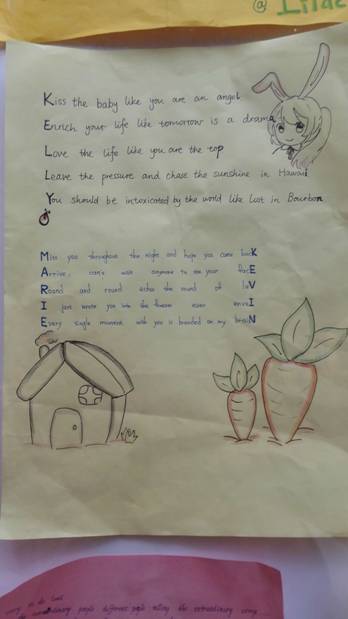 @ Lilac
Kiss the baby like you are an angel
Enrich your life like tomorrow is a drama
Love the life like you are the top
Leave the pressure and chase the sunshine in Hawaii
You should be intoxicated by the world like lost in Bourbon
Miss you throughout the night and hope you come bacK
Arrive, can't wait anymore to see your facE
Round and round echo the sound of loV
I just wrote you into the ever enveI
Every single moment with you is branded on my braiN
people different people telling the extraordinary